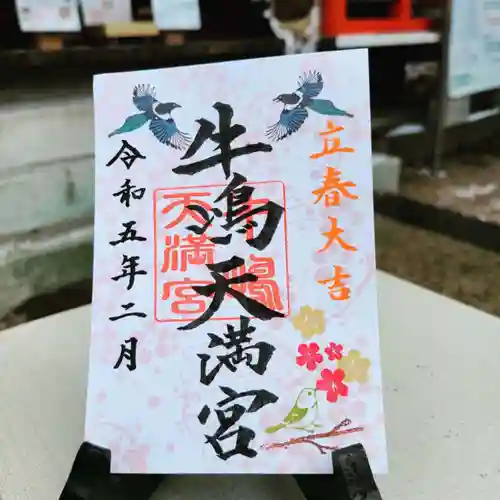 立春大吉
牛嶋天満宮
天満宮
令和五年二月